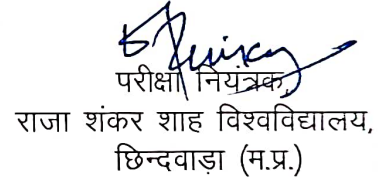 परीक्षा नियंत्रक,
राजा शंकर शाह विश्वविद्यालय,
छिन्दवाड़ा (म.प्र.)